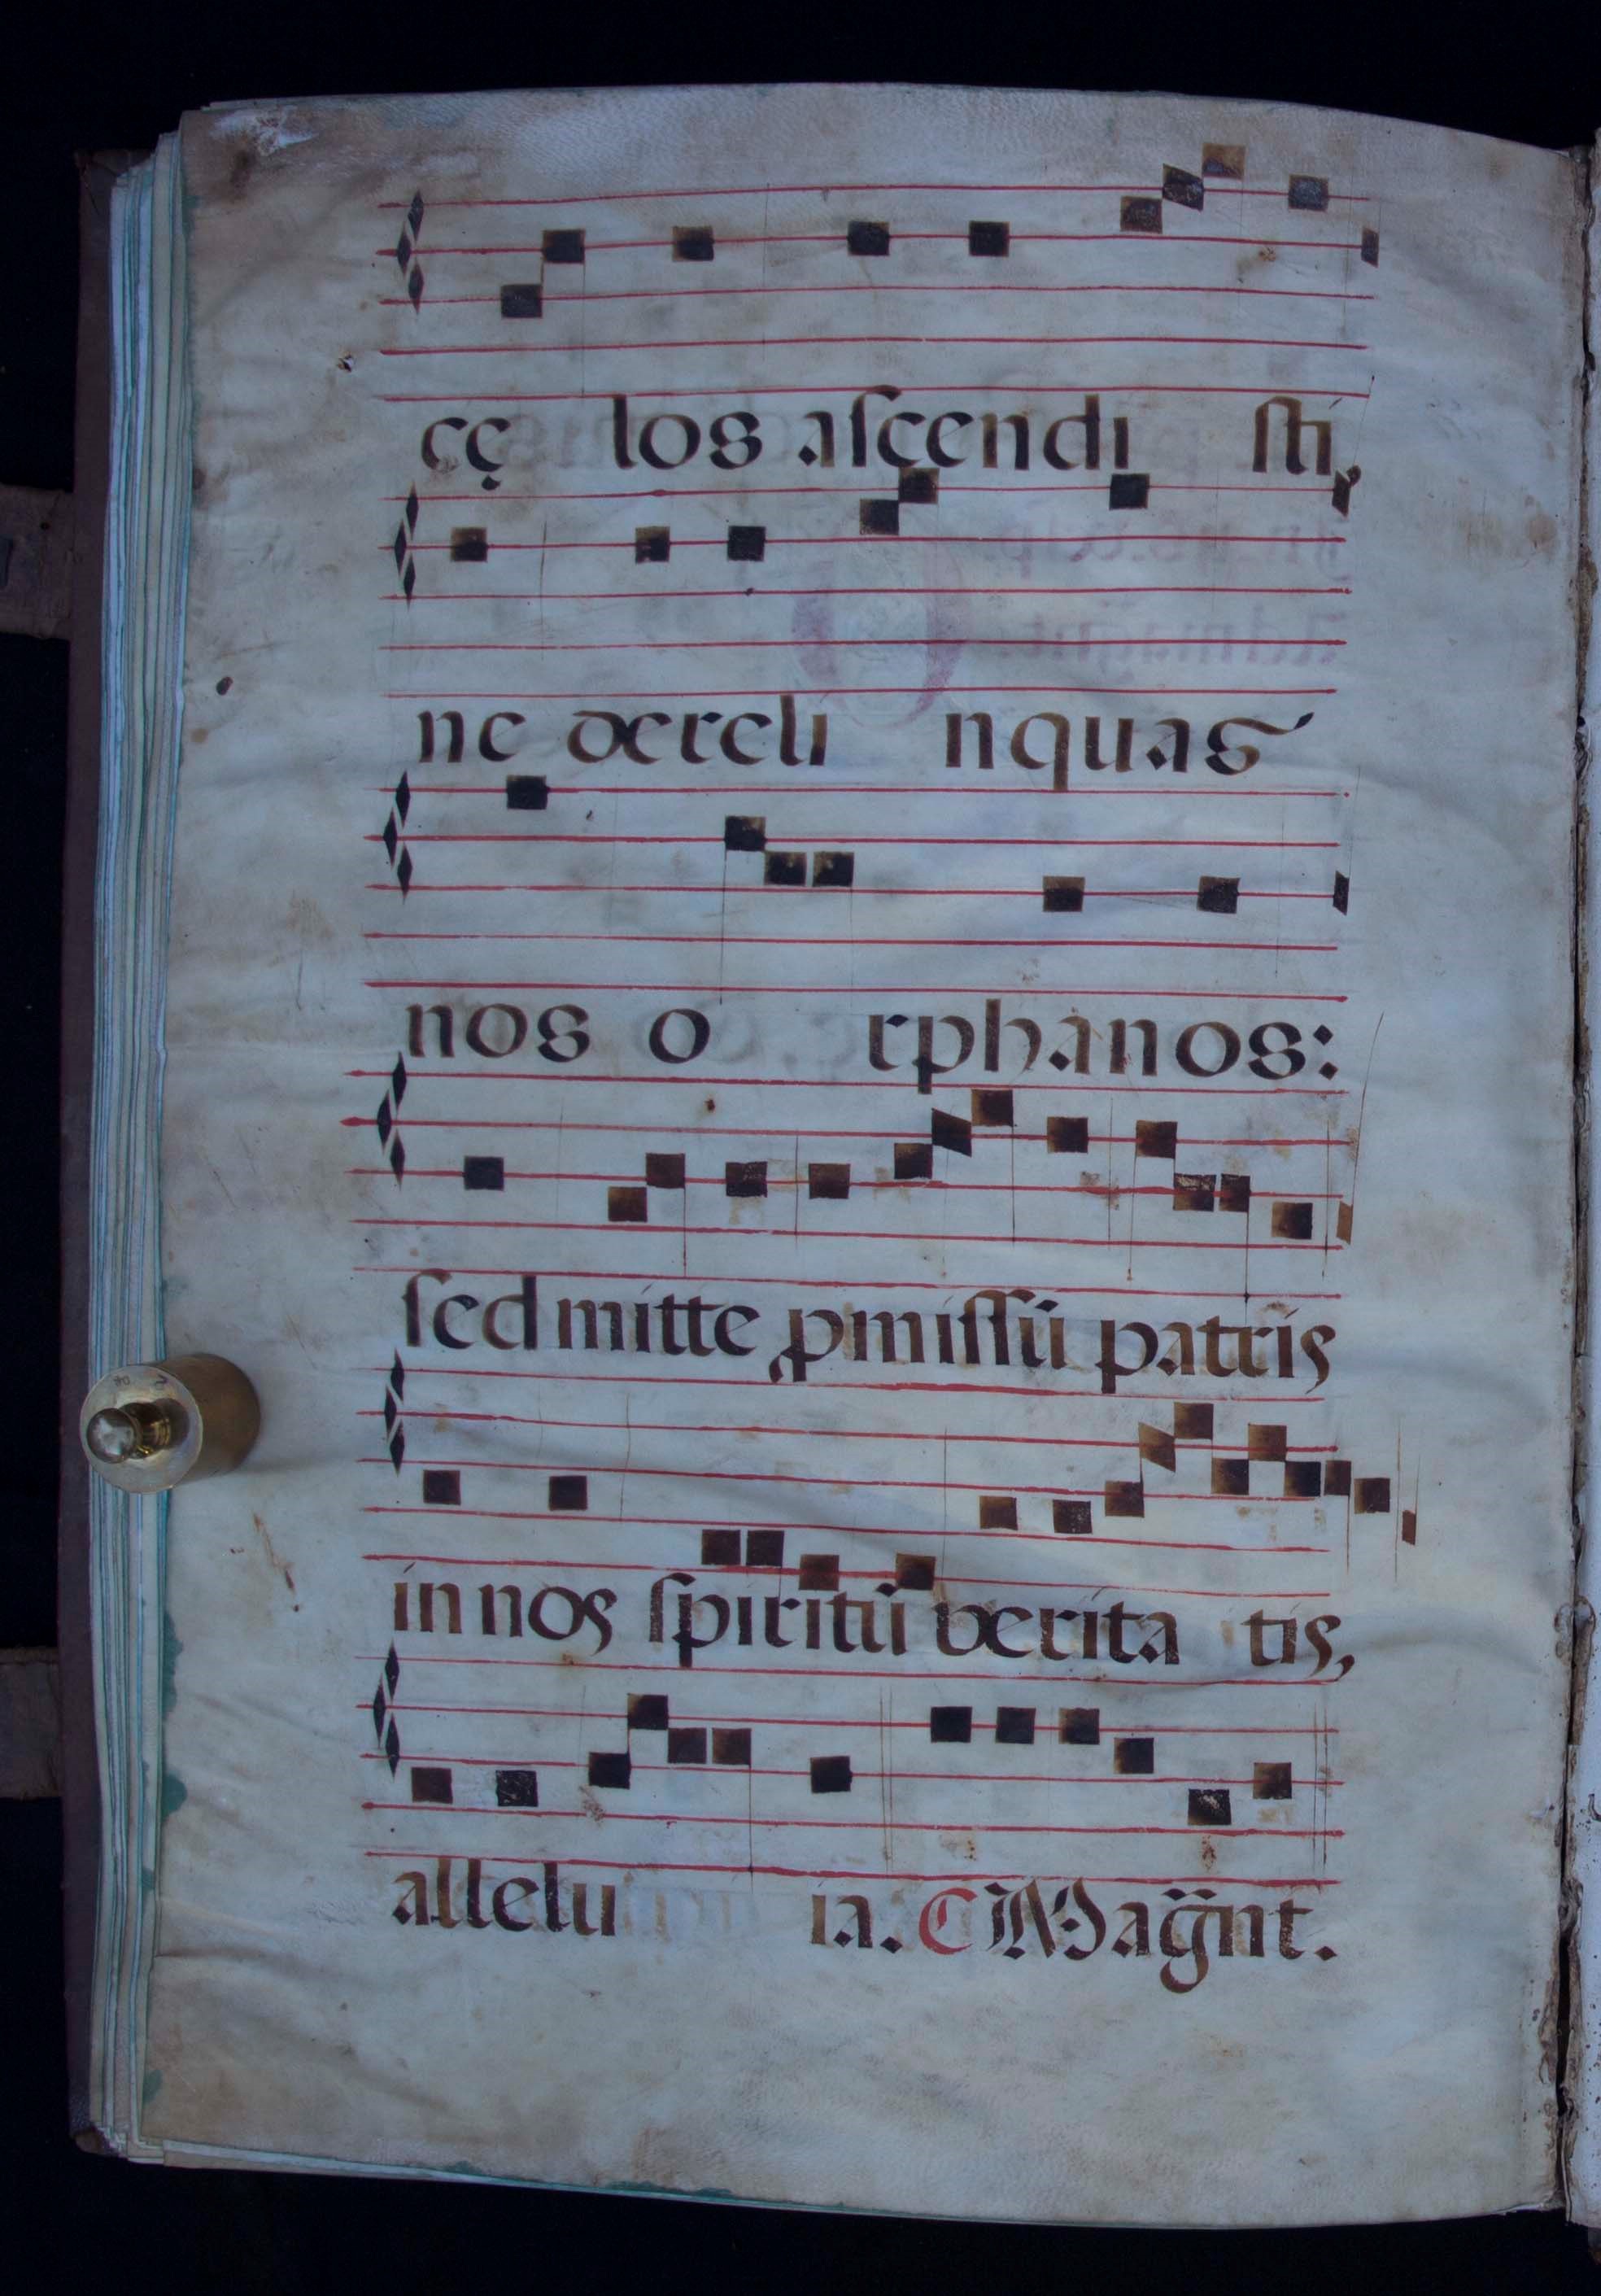 cę los aſcendi ſti,
ne dereli nquas
nos o rphanos:
ſed mitte ꝓmiſſū patris
in nos ſpiritū verita tis,
allelu ia. C Mag̃nt.